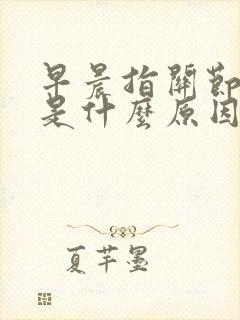 早晨指關節
是什麼原因
夏芊墨